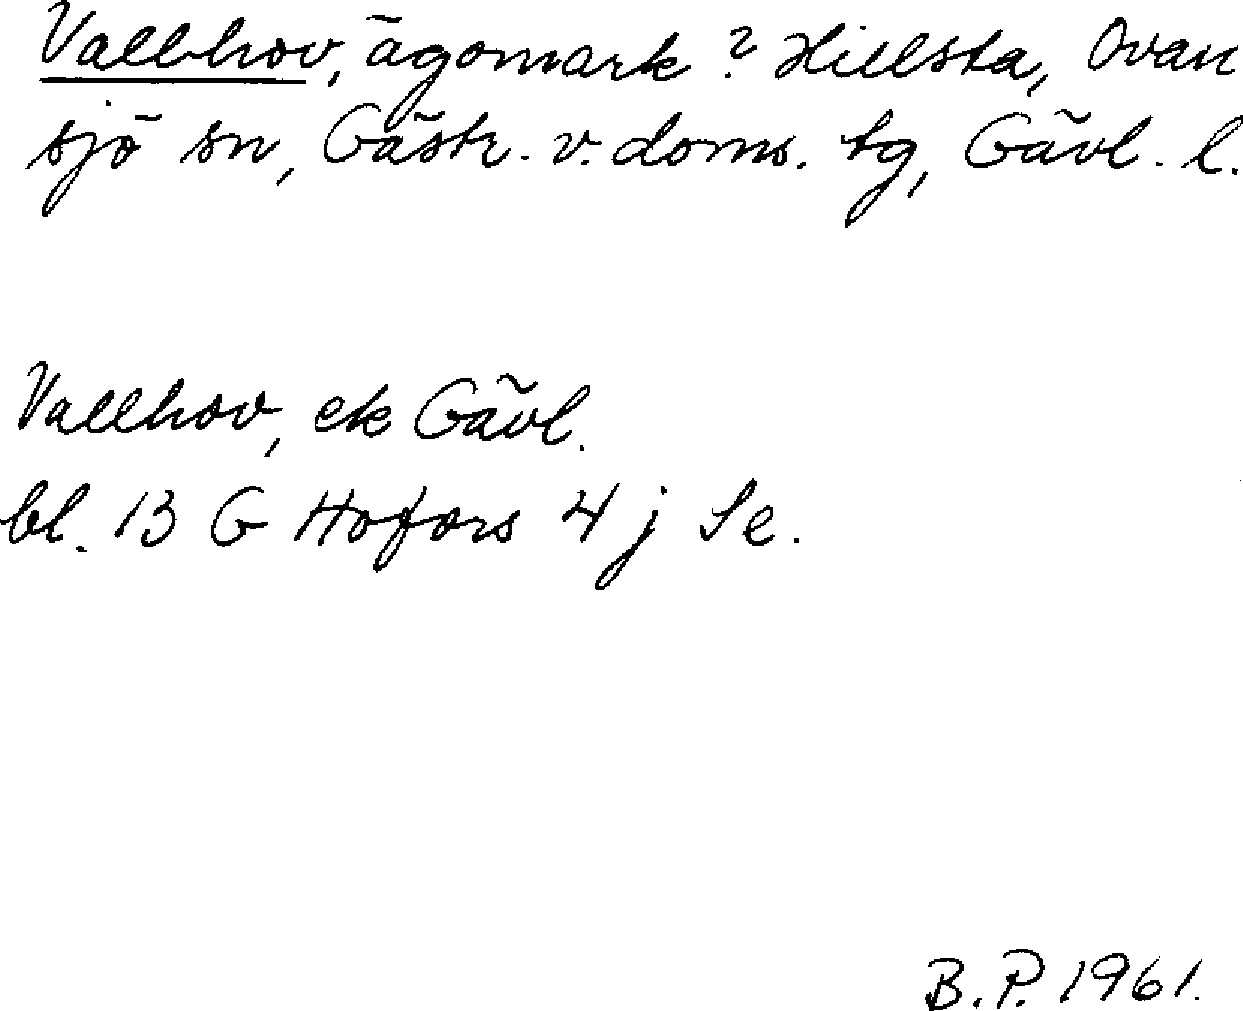 Vallhov, ägomark? Hillsta, Ovan
sjö sn, Gästr. v. doms. tg, Gävl. l.
Vallhov, ek Gävl.
bl. 13 G Hofors 4 j Se.
B.P. 1961.